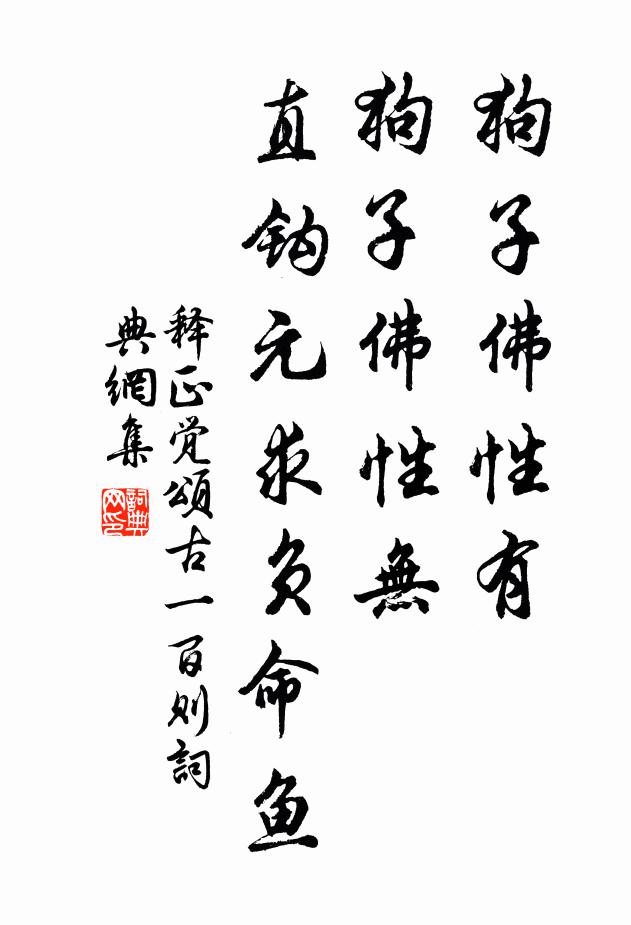 狗子佛性有
狗子佛性無
直鈎元求负命鱼
释正觉頌古一百则詞
典網集
詞典网印